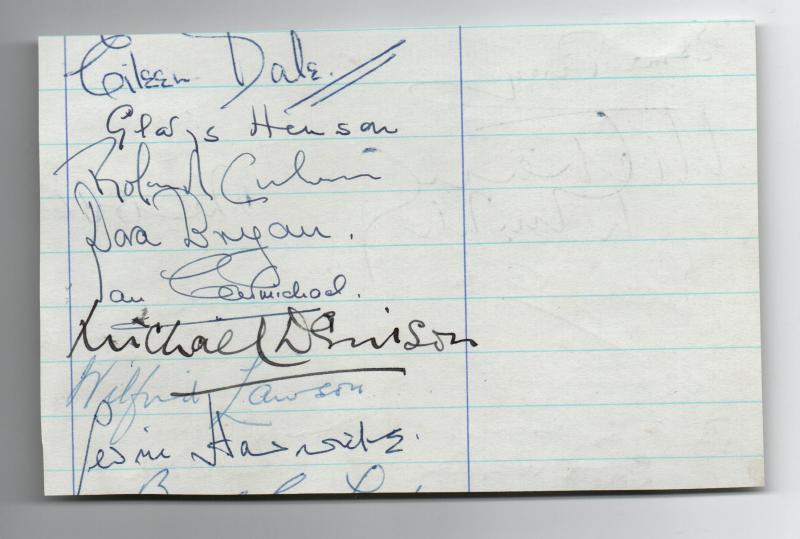 Eileen Dale.
Gladys Henson
Roland Culver
Dora Bryan.
Ian Carmichael.
Michael Denison
Wilfrid Lawson